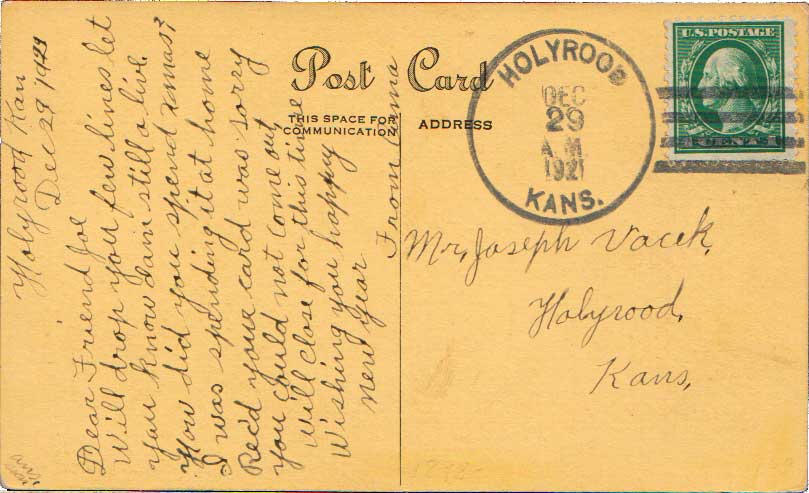 Holyrood Kan
Dec 29 1921
Dear Friend Joe
Will drop you few lines let
you know I am still alive.
How did you spend xmas?
I was spending it at home
Rec'd your card was sorry
you could not come out,
Will close for this time
Wishing you happy
New Year
From Anna
Post Card
THIS SPACE FOR
COMMUNICATION
ADDRESS
HOLYROOD
DEC
29
A.M.
1921
KANS.
U.S. POSTAGE
CENT
Mr. Joseph Vacek,
Holyrood,
Kans,